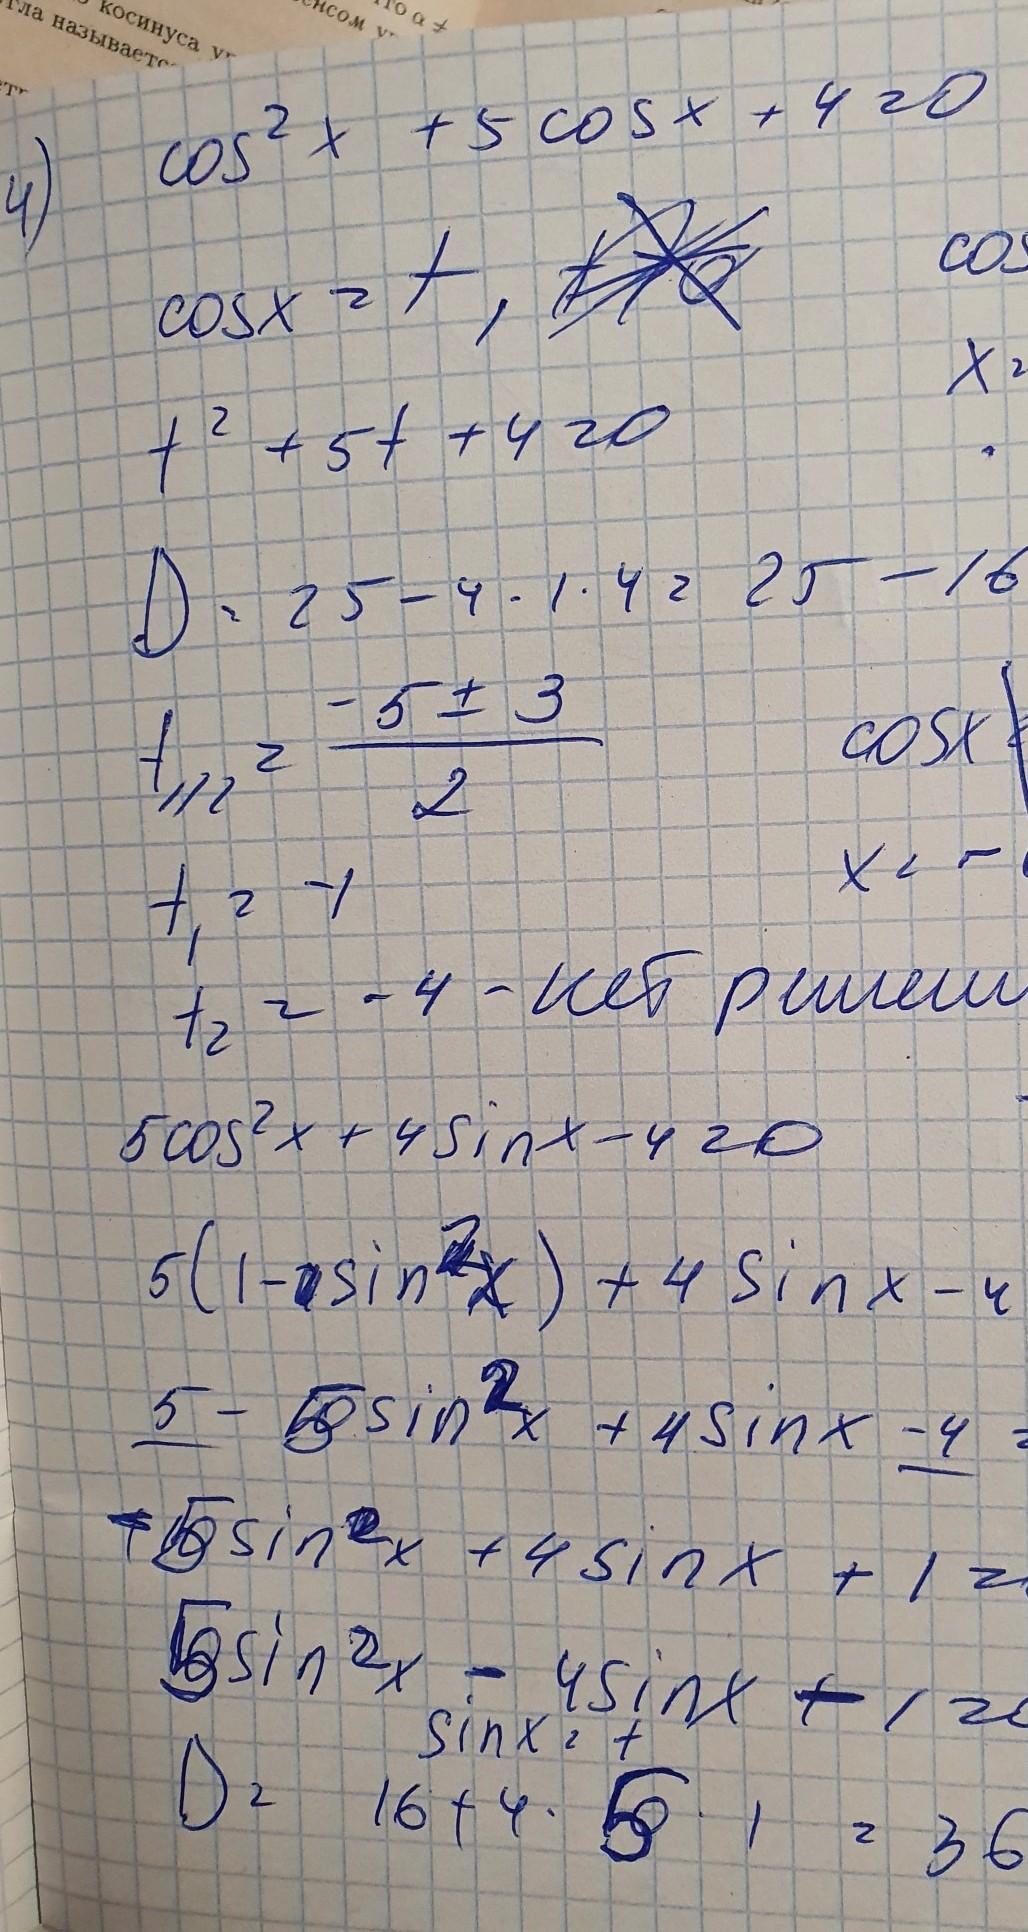 косинуса
называется
4) cos²x + 5cosx + 4 = 0
cosx = t,
cos
x =
t² + 5t + 4 = 0
D = 25 - 4 · 1 · 4 = 25 - 16
t₁,₂ = (-5 ± 3) / 2
cosx
t₁ = -1
x = -
t₂ = -4 - нет решен
5cos²x + 4sinx - 4 = 0
5(1 - sin²x) + 4sinx - 4
5 - 5sin²x + 4sinx - 4 =
-5sin²x + 4sinx + 1 =
5sin²x - 4sinx - 1 = 0
sinx = t
D = 16 + 4 · 5 · 1 = 36